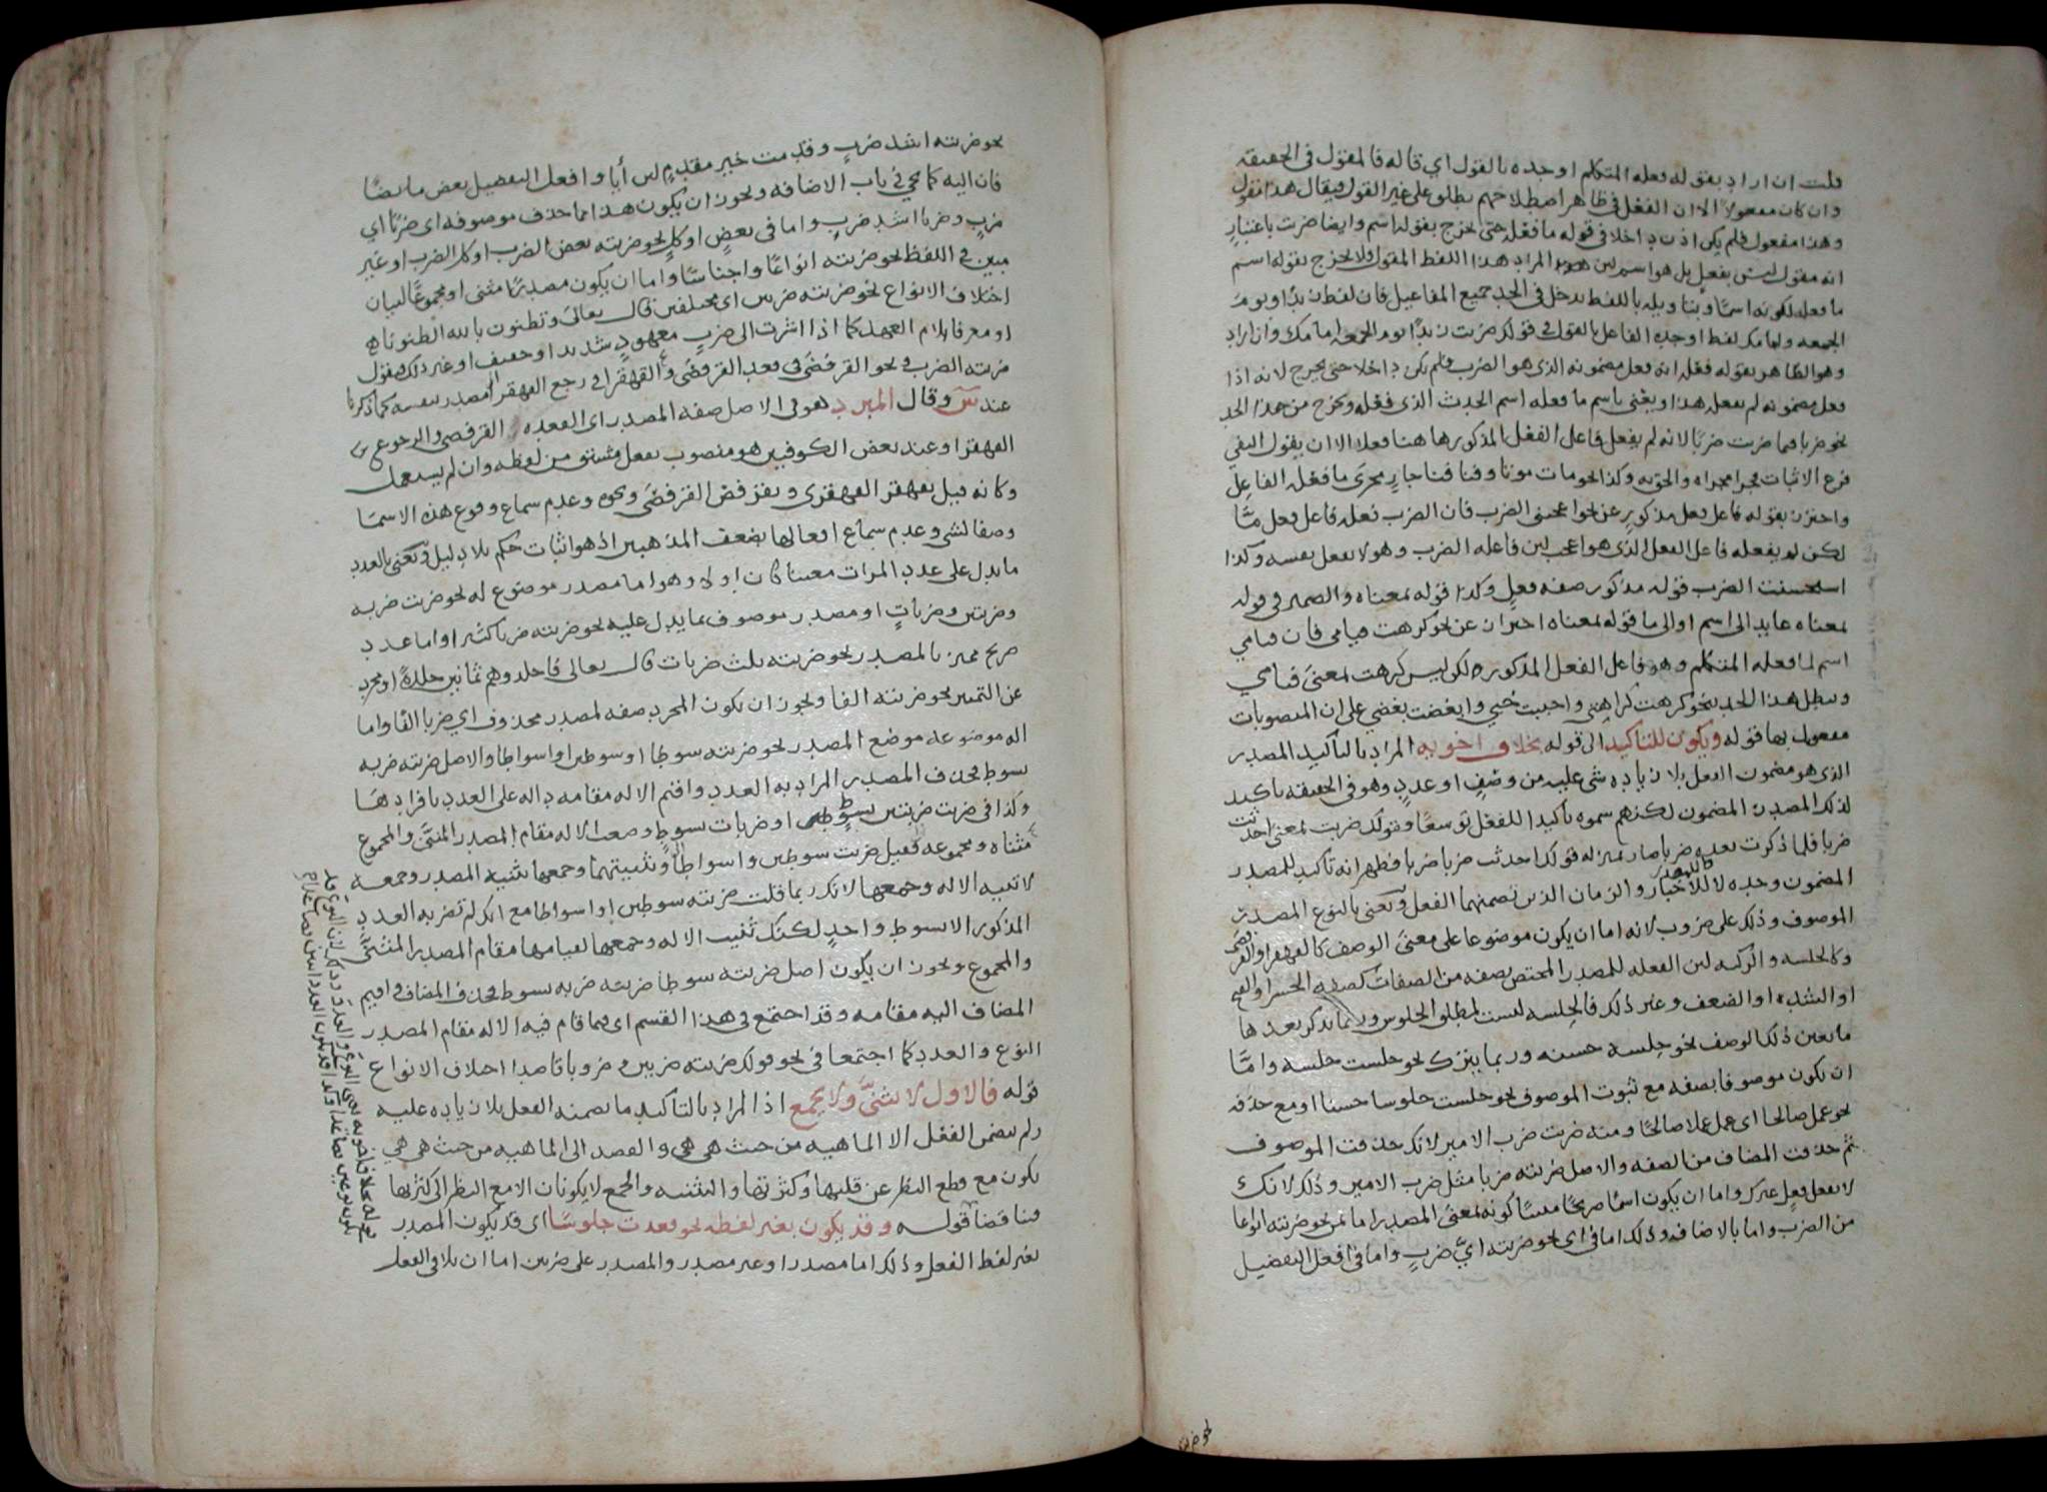 قلت ان اراد بقوله فعله المتكلم اوجده بالقول اي قاله فالمقول في الحقيقه
وان كان مفعولا الا ان الفعل في ظاهر اصطلاحهم يطلق على غير القول فيقال هذا مقول
وهذا مفعول فلم يكن اذن داخلا في قوله ما فعله حتى يخرج بقوله اسم وايضا ضربت باعتبار
انه مقول ليس بفعل بل هو اسم لان المراد هذا اللفظ المقول ولا يخرج بقوله اسم
ما فعله لكونه اسما وان اراد باللفظ يدخل في الحد جميع المفاعيل فان لفظ زيدا ويوم
الجمعه وامامك لفظ اوجده الفاعل بالقول في قولك ضربت زيدا يوم الجمعه امامك وان اراد
وهو الظاهر بقوله فعله انه فعل مضمونه الذي هو الضرب فلم يكن داخلا حتى يخرج لانه اذا
فعل مضمونه لم يفعل هذا ويعني باسم ما فعله اسم الحدث الذي فعله ويخرج من هذا الحد
نحو ضربا فما ضربت ضربا لانه لم يفعل فاعل الفعل المذكور ها هنا فعلا الا ان يقول النفي
فرع الاثبات فجرا مجراه والحق به وكذا نحو مات موتا وفنا فنا جار مجرى ما فعله الفاعل
واحترز بقوله فاعل فعل مذكور عن نحو اعجبني الضرب فان الضرب فعله فاعل فعل ما
لكن لم يفعله فاعل الفعل الذي هو اعجب لان فاعله الضرب وهو لا يفعل نفسه وكذا
استحسنت الضرب قوله مذكور صفه فعل وكذا قوله بمعناه والضمير في قوله
بمعناه عايد الى اسم او الى ما قوله بمعناه احتراز عن نحو كرهت قيامي فان قيامي
اسم لما فعله المتكلم وهو فاعل الفعل المذكور لكن ليس كرهت بمعنى قيامي
ويبطل هذا الحد بنحو كرهت كراهتي واحببت حبي وابغضت بغضي على ان المنصوبات
مفعول بها قوله ويكون للتاكيد الى قوله بخلاف اخويه المراد بالتاكيد المصدر
الذي هو مضمون الفعل بلا زياده شي عليه من وصف او عدد وهو في الحقيقه تاكيد
لذلك المصدر المضمون لكنهم سموه تاكيدا للفعل توسعا وقولك ضربت بمعنى احدثت
ضربا فلما ذكرت بعده ضربا صار بمنزله قولك احدثت ضربا ضربا فظهر انه تاكيد للمصدر
المضمون وحده لا للاخبار والزمان الذين تضمنهما الفعل ويعني بالنوع المصدر
الموصوف وذلك على ضروب لانه اما ان يكون موضوعا على معنى الوصف كالقهقرا والقرفصا
وكالجلسه والركبه لان الفعله للمصدر المختص بصفه من الصفات كصفه الحسن او القبح
او الشده او الضعف وغير ذلك فالجلسه ليست لمطلق الجلوس وربما يذكر بعدها
ما يعين ذلك الوصف نحو جلسه حسنه وربما يترك نحو جلست جلسه واما
ان يكون موصوفا بصفه مع ثبوت الموصوف نحو جلست جلوسا حسنا او مع حذفه
نحو عمل صالحا اي عمل عملا صالحا ومنه ضربت ضرب الامير لانك حذفت الموصوف
ثم حذفت المضاف من الصفه والاصل ضربته ضربا مثل ضرب الامير وذلك لانك
لا تفعل فعل غيرك واما ان يكون اسما صريحا مبينا كونه بمعنى المصدر اما بمن نحو ضربته انواعا
من الضرب واما بالاضافه وذلك اما في اي نحو ضربته اي ضرب واما في افعل التفضيل
نحو ضربته
نحو ضربته اشد ضرب وقدمت خير مقدم لان أيا وافعل التفضيل بعض ما يضا
فان اليه كما يجي في باب الاضافه ويجوز ان يكون هذا مما حذف موصوفه اي ضربا اي
ضرب وضربا اشد ضرب واما في بعض او كل نحو ضربته بعض الضرب او كل الضرب او غير
مبين في اللفظ نحو ضربته انواعا واجناسا واما ان يكون مصدرا مثنى او مجموعا لبيان
اختلاف الانواع نحو ضربته ضربين اي مختلفين قال تعالى وتظنون بالله الظنونا
او معرفا بلام العهد كما اذا اشرت الى ضرب معهود شديد او خفيف او غير ذلك فتقول
ضربته الضرب في نحو القرفصى في قعد القرفصى والقهقرا في رجع القهقرا مصدر بنفسه كما ذكرنا
عند س وقال المبرد هو في الاصل صفه المصدر اي القعده القرفصى والرجوع
القهقرا وعند بعض الكوفيين هو منصوب بفعل مشتق من لفظه وان لم يستعمل
وكانه قيل تقهقر القهقرى وتقرفص القرفصى ونحوه وعدم سماع وقوع هذه الاسما
وصفا لشي وعدم سماع افعالها يضعف المذهبين اذ هو اثبات حكم بلا دليل ويعني بالعدد
ما يدل على عدد المرات معينا كان او لا وهو اما مصدر موضوع له نحو ضربت ضربه
وضربتين وضربات او مصدر موصوف بما يدل عليه نحو ضربته ضربا كثيرا واما عدد
صريح مميز بالمصدر نحو ضربته ثلث ضربات قال تعالى فاجلدوهم ثمانين جلدة او مجرد
عن التمييز نحو ضربته الفا ويجوز ان يكون المجرد صفه لمصدر محذوف اي ضربا الفا واما
اله موضوعه موضع المصدر نحو ضربته سوطا او سوطين او اسواطا والاصل ضربته ضربه
بسوط فحذف المصدر المراد به العدد واقيم الاله مقامه داله على العدد بافرادها
وكذا في ضربت ضربتين بسوط او ضربات بسوط وضعت الاله مقام المصدر المثنى والمجموع
مثناه ومجموعه فقيل ضربت سوطين واسواطا وتثنيتهما وجمعها تثنيه المصدر وجمعه
لا تثنيه الاله وجمعها لانك ربما قلت ضربته سوطين او اسواطا مع انك لم تضربه العدد
المذكور الا بسوط واحد لكنك ثنيت الاله وجمعها لقيامها مقام المصدر المثنى
والمجموع ويجوز ان يكون اصل ضربته سوطا ضربته ضربه بسوط فحذف المضاف واقيم
المضاف اليه مقامه وقد اجتمع في هذا القسم اي فيما قام فيه الاله مقام المصدر
النوع والعدد كما اجتمعا في نحو قولك ضربته ضربين وضروبا قاصدا اختلاف الانواع
قوله فالاول لا يثنى ولا يجمع اذ المراد بالتاكيد ما تضمنه الفعل بلا زياده عليه
ولم يتضمن الفعل الا الماهيه من حيث هي هي والقصد الى الماهيه من حيث هي هي
يكون مع قطع النظر عن قلتها وكثرتها والتثنيه والجمع لا يكونان الا مع النظر الى كثرتها
فتناقضا قوله وقد يكون بغير لفظه نحو قعدت جلوسا اي قد يكون المصدر
بغير لفظ الفعل وذلك اما مصدر او غير مصدر والمصدر على ضربين اما ان يلاقي الفعل
قوله بخلاف اخويه يعني النوع والعدد وذلك لان النوع قد